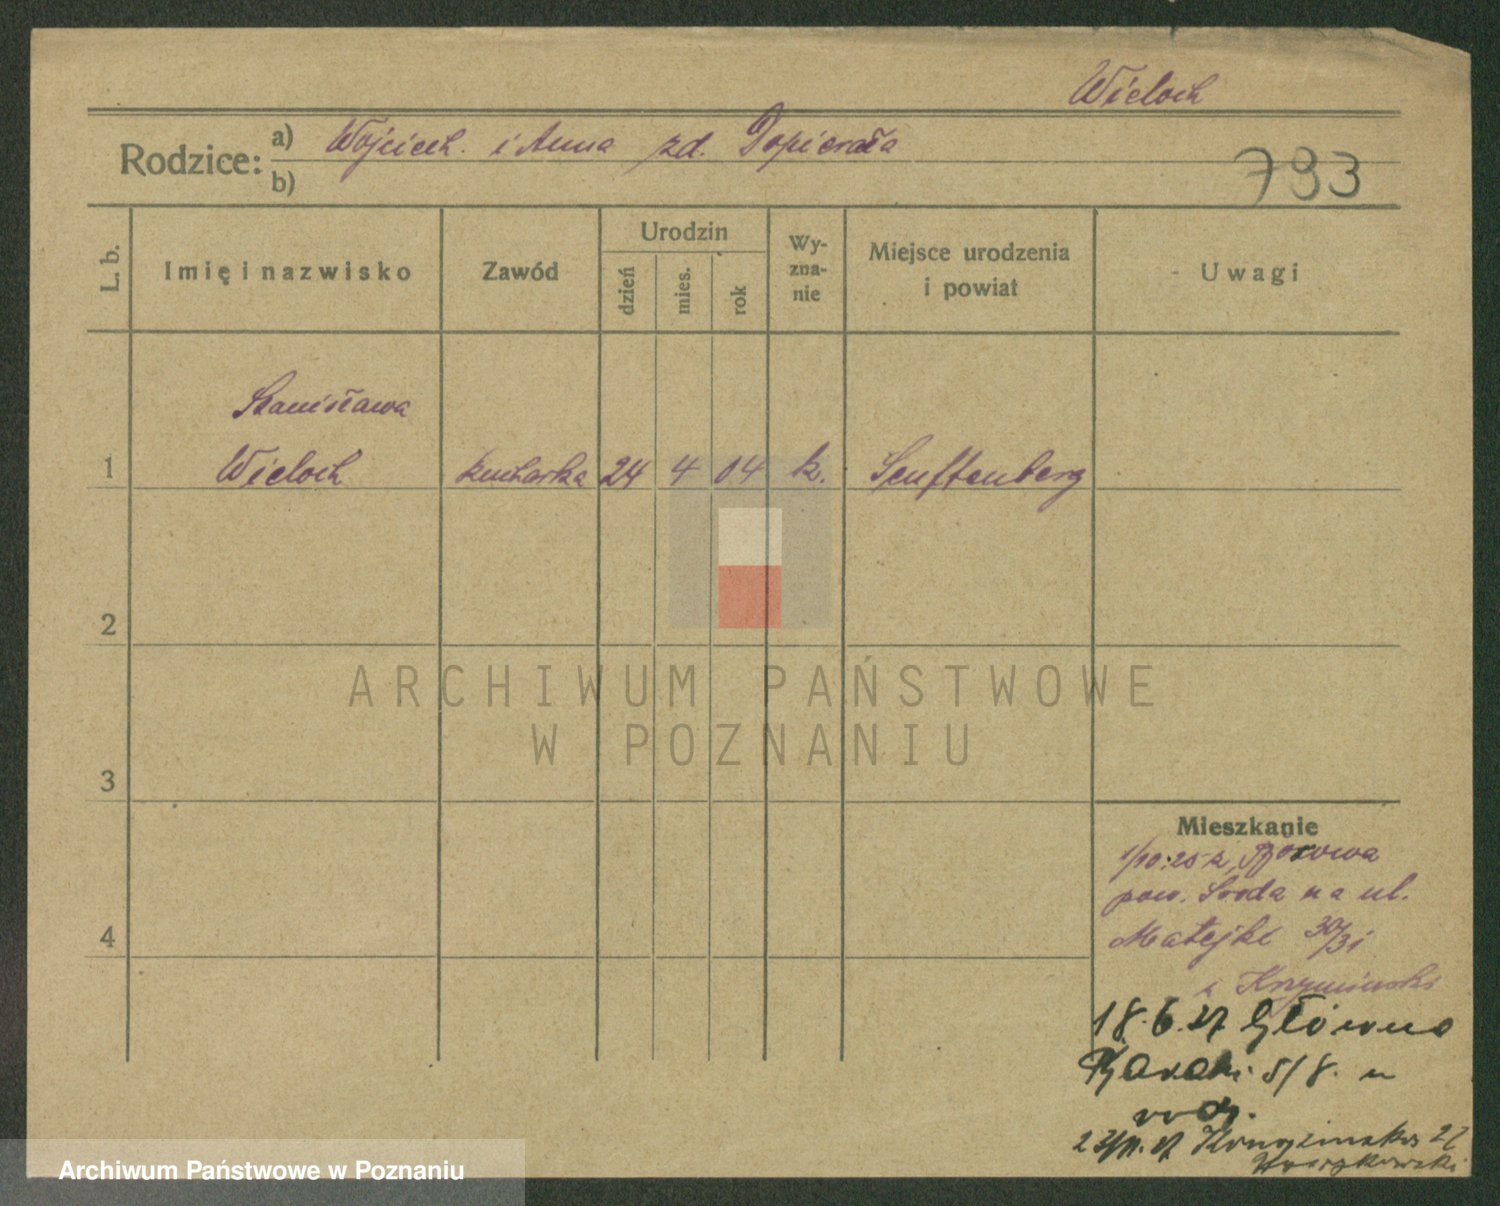 Wieloch
Rodzice: a) Wojciech. i Anna zd. Popierała
b)
793
L. b. Imię i nazwisko Zawód Urodzin dzień mies. rok Wy-zna-nie Miejsce urodzenia i powiat Uwagi
Stanisława
1 Wieloch kucharka 24 4 04 k. Senftenberg
2
ARCHIWUM PAŃSTWOWE
W POZNANIU
3
Mieszkanie
1/10.25 z
pow. Środa na ul.
4
Matejki 30/31
18.6.27 Główno
Baraki 5/8. u
rodz.
Archiwum Państwowe w Poznaniu